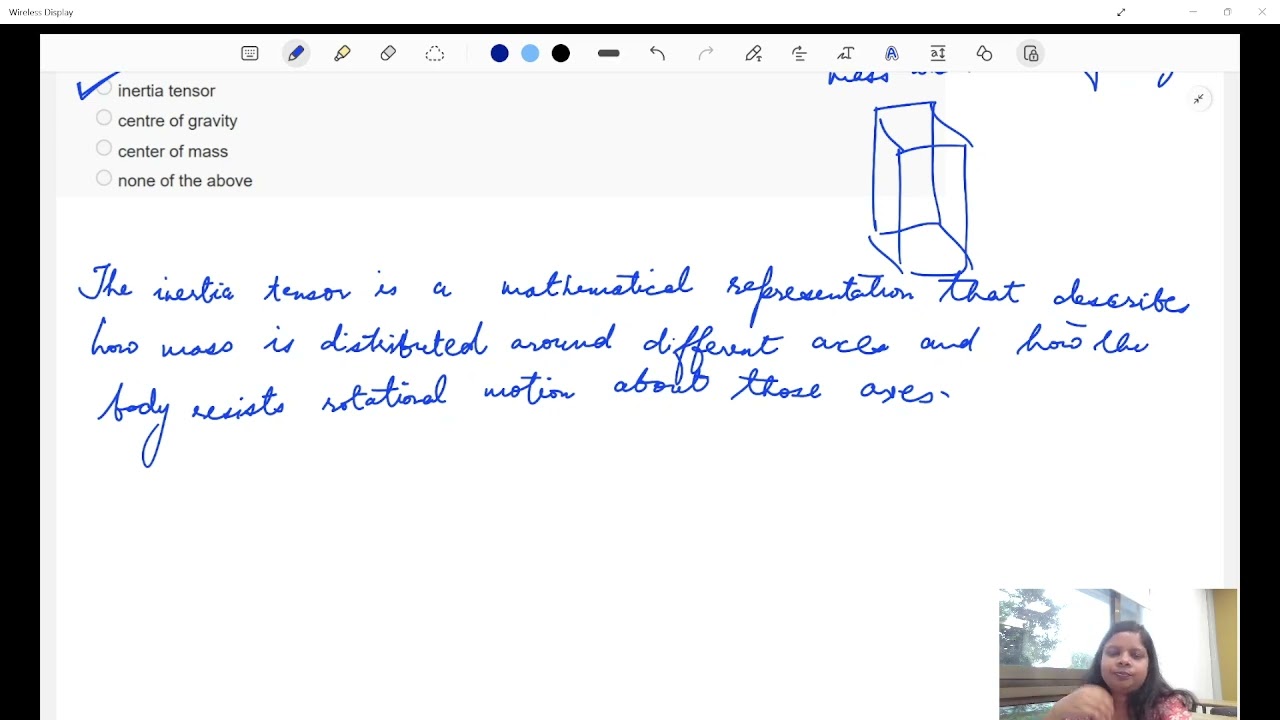 Wireless Display
mass
inertia tensor
centre of gravity
center of mass
none of the above
The inertia tensor is a mathematical representation that describes
how mass is distributed around different axes and how the
body resists rotational motion about those axes.